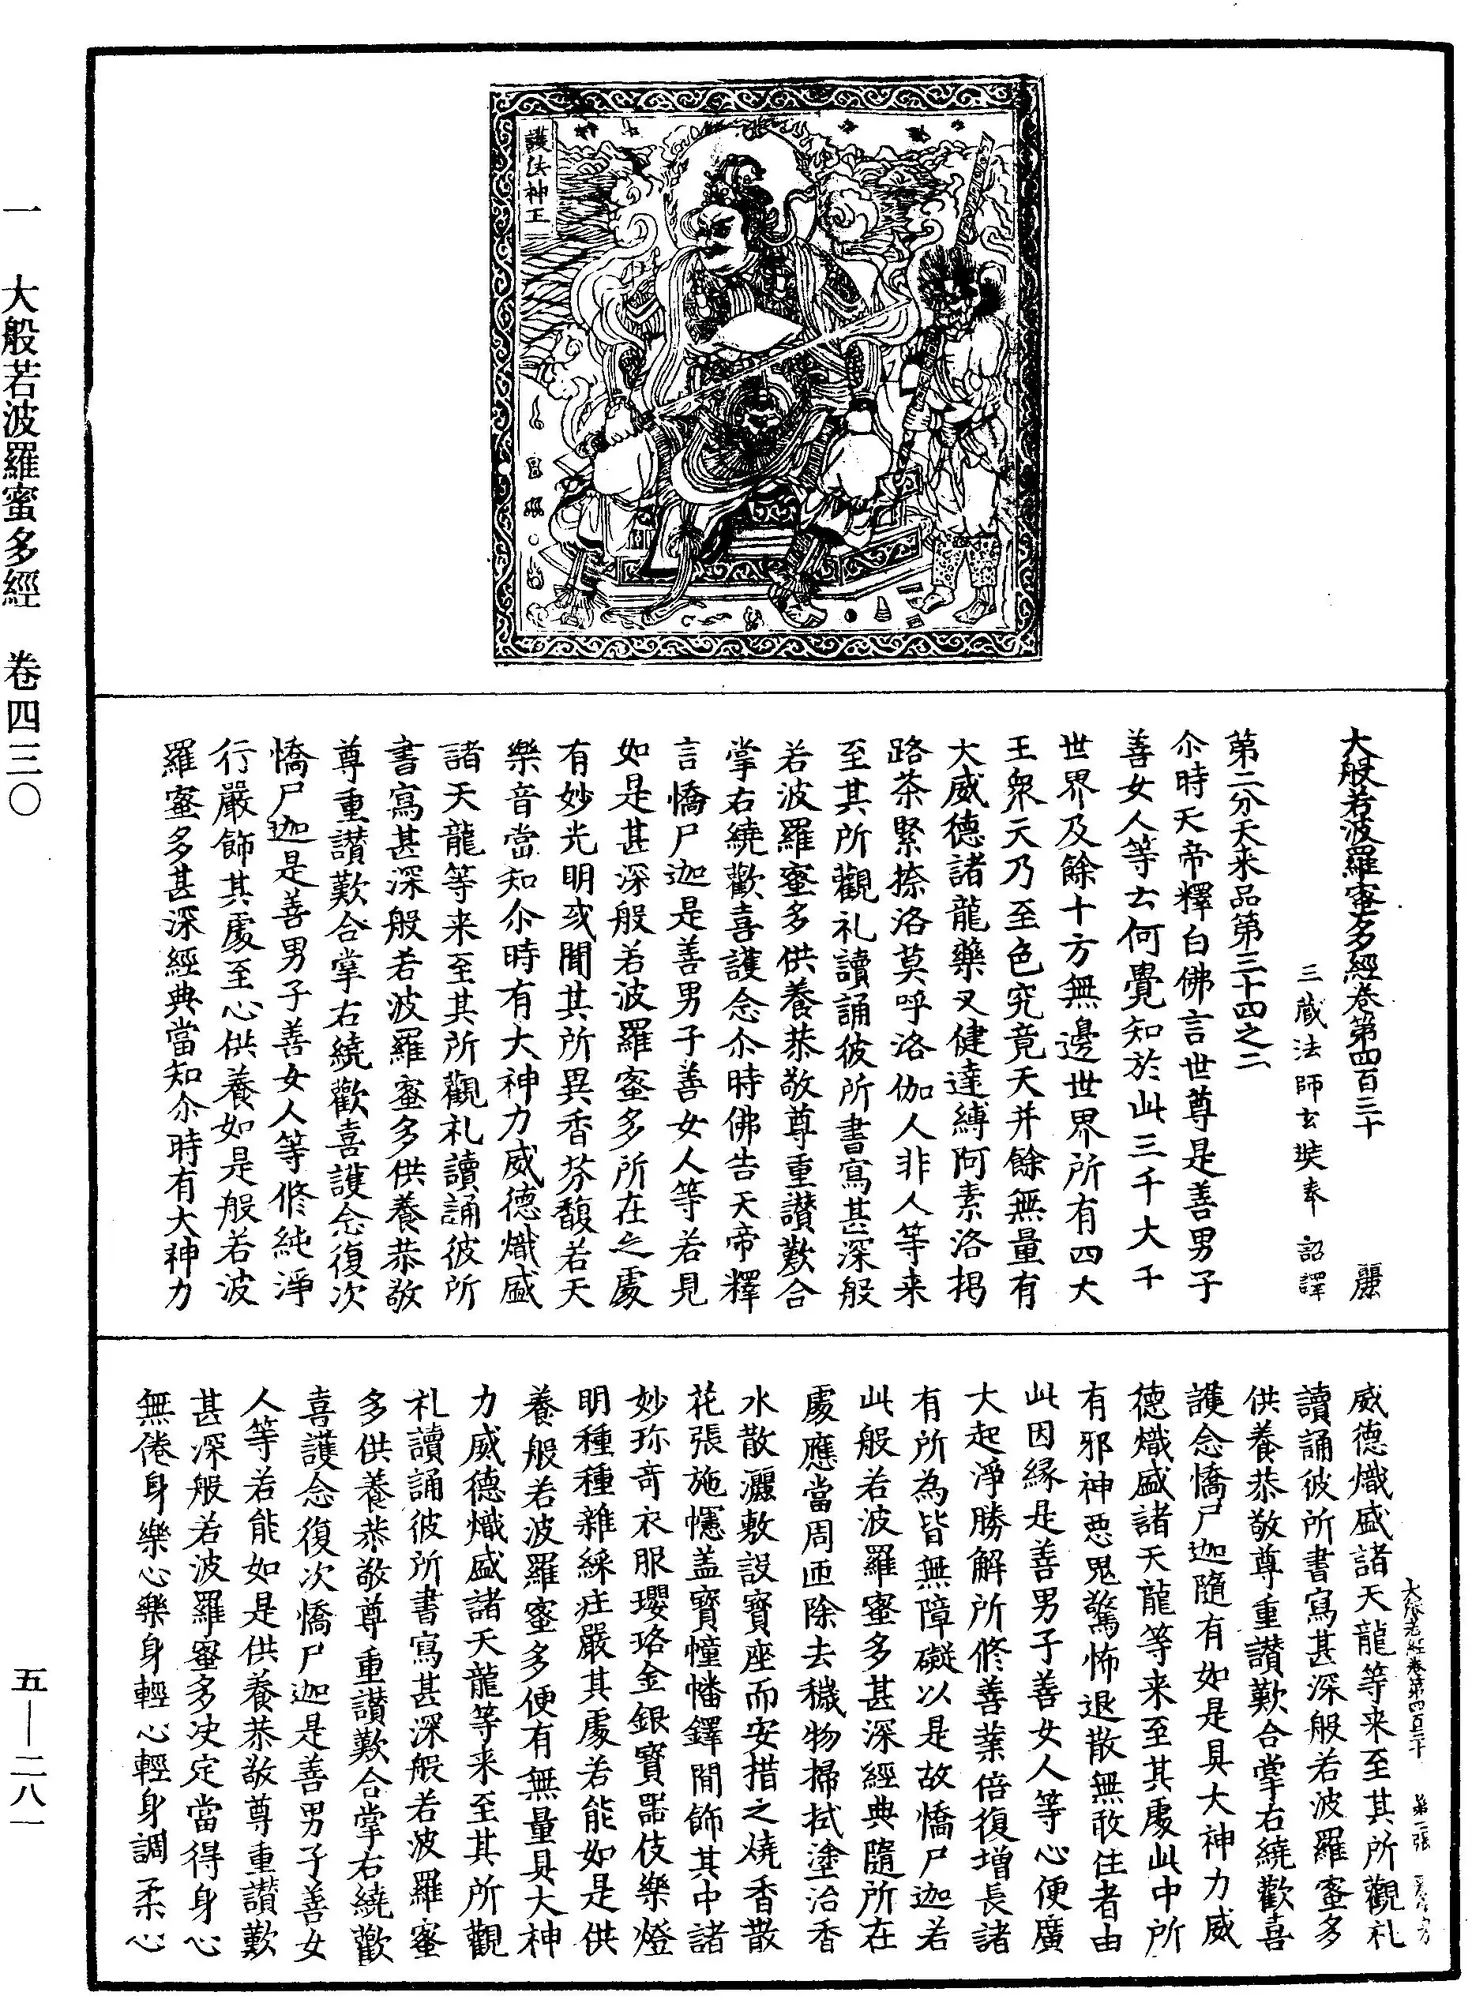 一 大般若波羅蜜多經 卷四三〇
五—二八一
護法神王
大般若波羅蜜多經卷第四百三十 麗
三藏法師玄奘奉 詔譯
第二分天来品第三十四之二
尒時天帝釋白佛言世尊是善男子
善女人等云何覺知於此三千大千
世界及餘十方無邊世界所有四大
王衆天乃至色究竟天并餘無量有
大威德諸龍藥叉健達縛阿素洛揭
路茶緊捺洛莫呼洛伽人非人等来
至其所觀礼讀誦彼所書寫甚深般
若波羅蜜多供養恭敬尊重讃歎合
掌右繞歡喜護念尒時佛告天帝釋
言憍尸迦是善男子善女人等若見
如是甚深般若波羅蜜多所在之處
有妙光明或聞其所異香芬馥若天
樂音當知尒時有大神力威德熾盛
諸天龍等来至其所觀礼讀誦彼所
書寫甚深般若波羅蜜多供養恭敬
尊重讃歎合掌右繞歡喜護念復次
憍尸迦是善男子善女人等修純淨
行嚴飾其處至心供養如是般若波
羅蜜多甚深經典當知尒時有大神力
大般若經卷第四百三十 第二張
威德熾盛諸天龍等来至其所觀礼
讀誦彼所書寫甚深般若波羅蜜多
供養恭敬尊重讃歎合掌右繞歡喜
護念憍尸迦隨有如是具大神力威
德熾盛諸天龍等来至其處此中所
有邪神惡鬼驚怖退散無敢住者由
此因緣是善男子善女人等心便廣
大起淨勝解所修善業倍復增長諸
有所為皆無障礙以是故憍尸迦若
此般若波羅蜜多甚深經典隨所在
處應當周匝除去穢物掃拭塗治香
水散灑敷設寶座而安措之燒香散
花張施幰盖寶幢幡鐸閒飾其中諸
妙珎竒衣服瓔珞金銀寶器伎樂燈
明種種雜綵莊嚴其處若能如是供
養般若波羅蜜多便有無量具大神
力威德熾盛諸天龍等来至其所觀
礼讀誦彼所書寫甚深般若波羅蜜
多供養恭敬尊重讃歎合掌右繞歡
喜護念復次憍尸迦是善男子善女
人等若能如是供養恭敬尊重讃歎
甚深般若波羅蜜多决定當得身心
無倦身樂心樂身輕心輕身調柔心